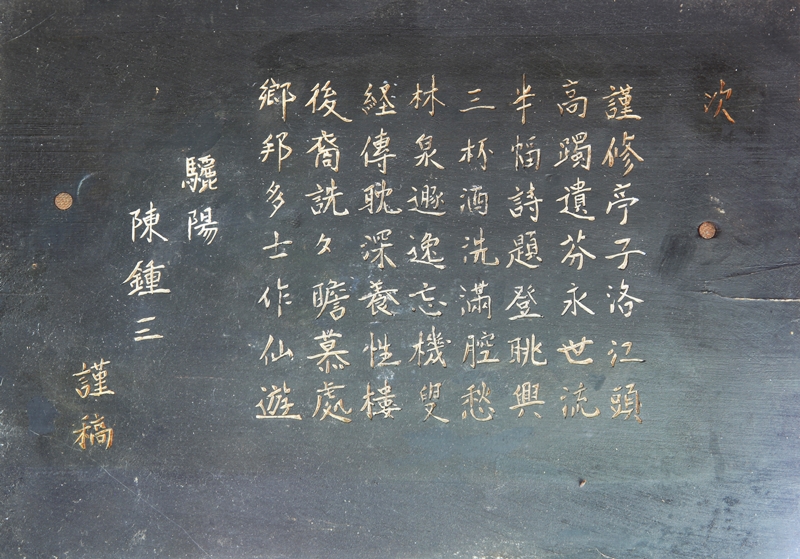 次
謹修亭子洛江頭
高躅遺芬永世流
半幅詩題登眺興
三杯酒洗滿腔愁
林泉遯逸忘機叟
経傳耽深養性樓
後裔詵々瞻慕處
鄉邦多士作仙遊
驪陽
陳鍾三
謹稿